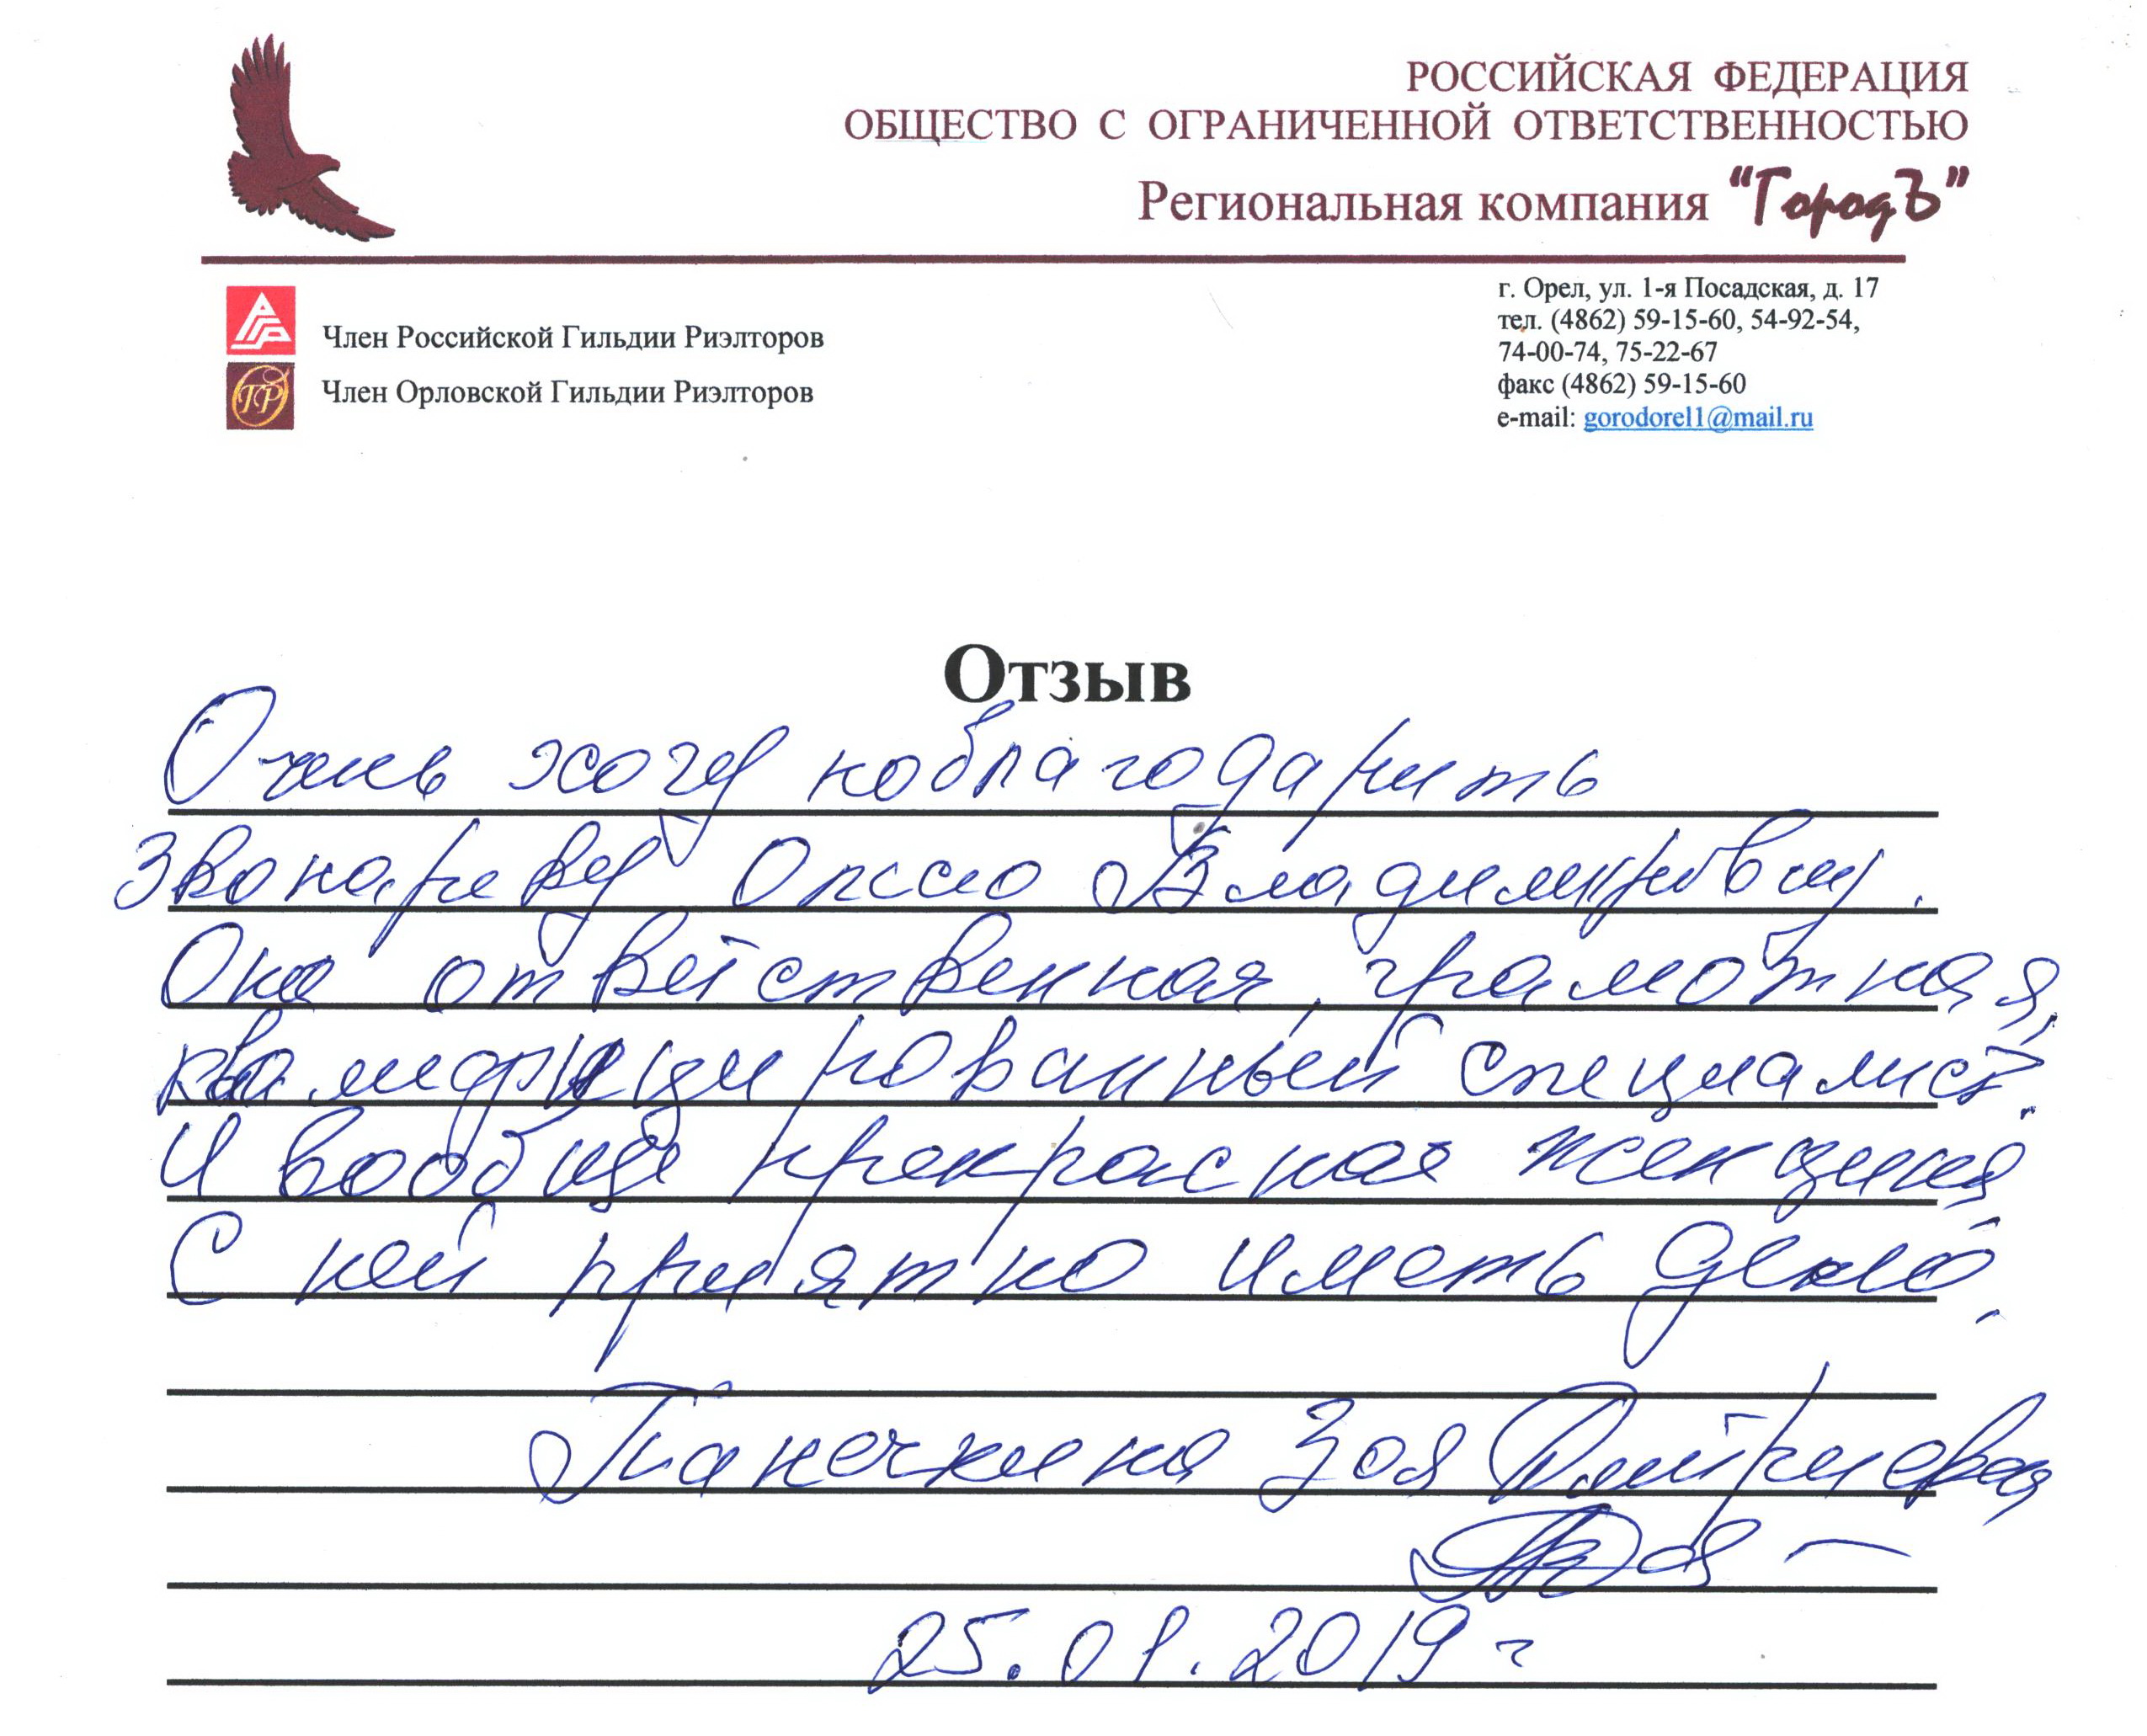 РОССИЙСКАЯ ФЕДЕРАЦИЯ
ОБЩЕСТВО С ОГРАНИЧЕННОЙ ОТВЕТСТВЕННОСТЬЮ
Региональная компания "ГородЪ"
Член Российской Гильдии Риэлторов
Член Орловской Гильдии Риэлторов
г. Орел, ул. 1-я Посадская, д. 17
тел. (4862) 59-15-60, 54-92-54,
74-00-74, 75-22-67
факс (4862) 59-15-60
e-mail: gorodorel1@mail.ru
Отзыв
Очень хочу поблагодарить
Звонареву Владимировну.
Она ответственная, грамотная,
квалифицированный специалист.
И вообще прекрасная женщина
С ней приятно иметь дело.
Зоя Дмитриевна
25.01.2019 г